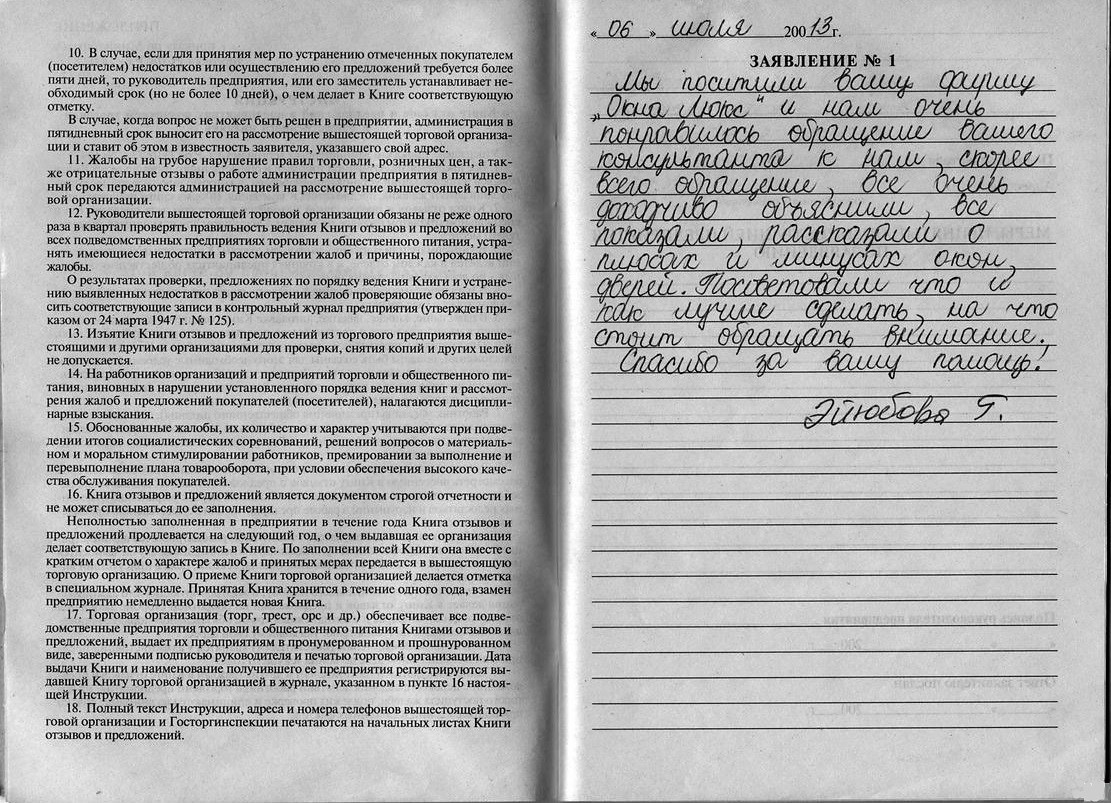 10. В случае, если для принятия мер по устранению отмеченных покупателем
(посетителем) недостатков или осуществлению его предложений требуется более
пяти дней, то руководитель предприятия, или его заместитель устанавливает не-
обходимый срок (но не более 10 дней), о чем делает в Книге соответствующую
отметку.
В случае, когда вопрос не может быть решен в предприятии, администрация в
пятидневный срок выносит его на рассмотрение вышестоящей торговой организа-
ции и ставит об этом в известность заявителя, указавшего свой адрес.
11. Жалобы на грубое нарушение правил торговли, розничных цен, а так-
же отрицательные отзывы о работе администрации предприятия в пятиднев-
ный срок передаются администрацией на рассмотрение вышестоящей торго-
вой организации.
12. Руководители вышестоящей торговой организации обязаны не реже одного
раза в квартал проверять правильность ведения Книги отзывов и предложений во
всех подведомственных предприятиях торговли и общественного питания, устра-
нять имеющиеся недостатки в рассмотрении жалоб и причины, порождающие
жалобы.
О результатах проверки, предложениях по порядку ведения Книги и устране-
нию выявленных недостатков в рассмотрении жалоб проверяющие обязаны вно-
сить соответствующие записи в контрольный журнал предприятия (утвержден при-
казом от 24 марта 1947 г. № 125).
13. Изъятие Книги отзывов и предложений из торгового предприятия выше-
стоящими и другими организациями для проверки, снятия копий и других целей
не допускается.
14. На работников организаций и предприятий торговли и общественного пи-
тания, виновных в нарушении установленного порядка ведения книг и рассмот-
рения жалоб и предложений покупателей (посетителей), налагаются дисципли-
нарные взыскания.
15. Обоснованные жалобы, их количество и характер учитываются при подве-
дении итогов социалистических соревнований, решений вопросов о материаль-
ном и моральном стимулировании работников, премировании за выполнение и
перевыполнение плана товарооборота, при условии обеспечения высокого каче-
ства обслуживания покупателей.
16. Книга отзывов и предложений является документом строгой отчетности и
не может списываться до ее заполнения.
Неполностью заполненная в предприятии в течение года Книга отзывов и
предложений продлевается на следующий год, о чем выдавшая ее организация
делает соответствующую запись в Книге. По заполнении всей Книги она вместе с
кратким отчетом о характере жалоб и принятых мерах передается в вышестоящую
торговую организацию. О приеме Книги торговой организацией делается отметка
в специальном журнале. Принятая Книга хранится в течение одного года, взамен
предприятию немедленно выдается новая Книга.
17. Торговая организация (торг, трест, орс и др.) обеспечивает все подве-
домственные предприятия торговли и общественного питания Книгами отзывов и
предложений, выдает их предприятиям в пронумерованном и прошнурованном
виде, заверенными подписью руководителя и печатью торговой организации. Дата
выдачи Книги и наименование получившего ее предприятия регистрируются вы-
давшей Книгу торговой организацией в журнале, указанном в пункте 16 настоя-
щей Инструкции.
18. Полный текст Инструкции, адреса и номера телефонов вышестоящей тор-
говой организации и Госторгинспекции печатаются на начальных листах Книги
отзывов и предложений.
« 06 » июля 2013 г.
ЗАЯВЛЕНИЕ № 1
Мы поситили вашу фирму
„Окна Люкс“ и нам очень
понравилось обращение вашего
консультанта к нам, скорее
всего обращение, все очень
доходчиво объяснили, все
показали, рассказали о
плюсах и минусах окон,
дверей. Посоветовали что и
как лучше сделать, на что
стоит обращать внимание.
Спасибо за вашу помощь!
Эйюбова Г.